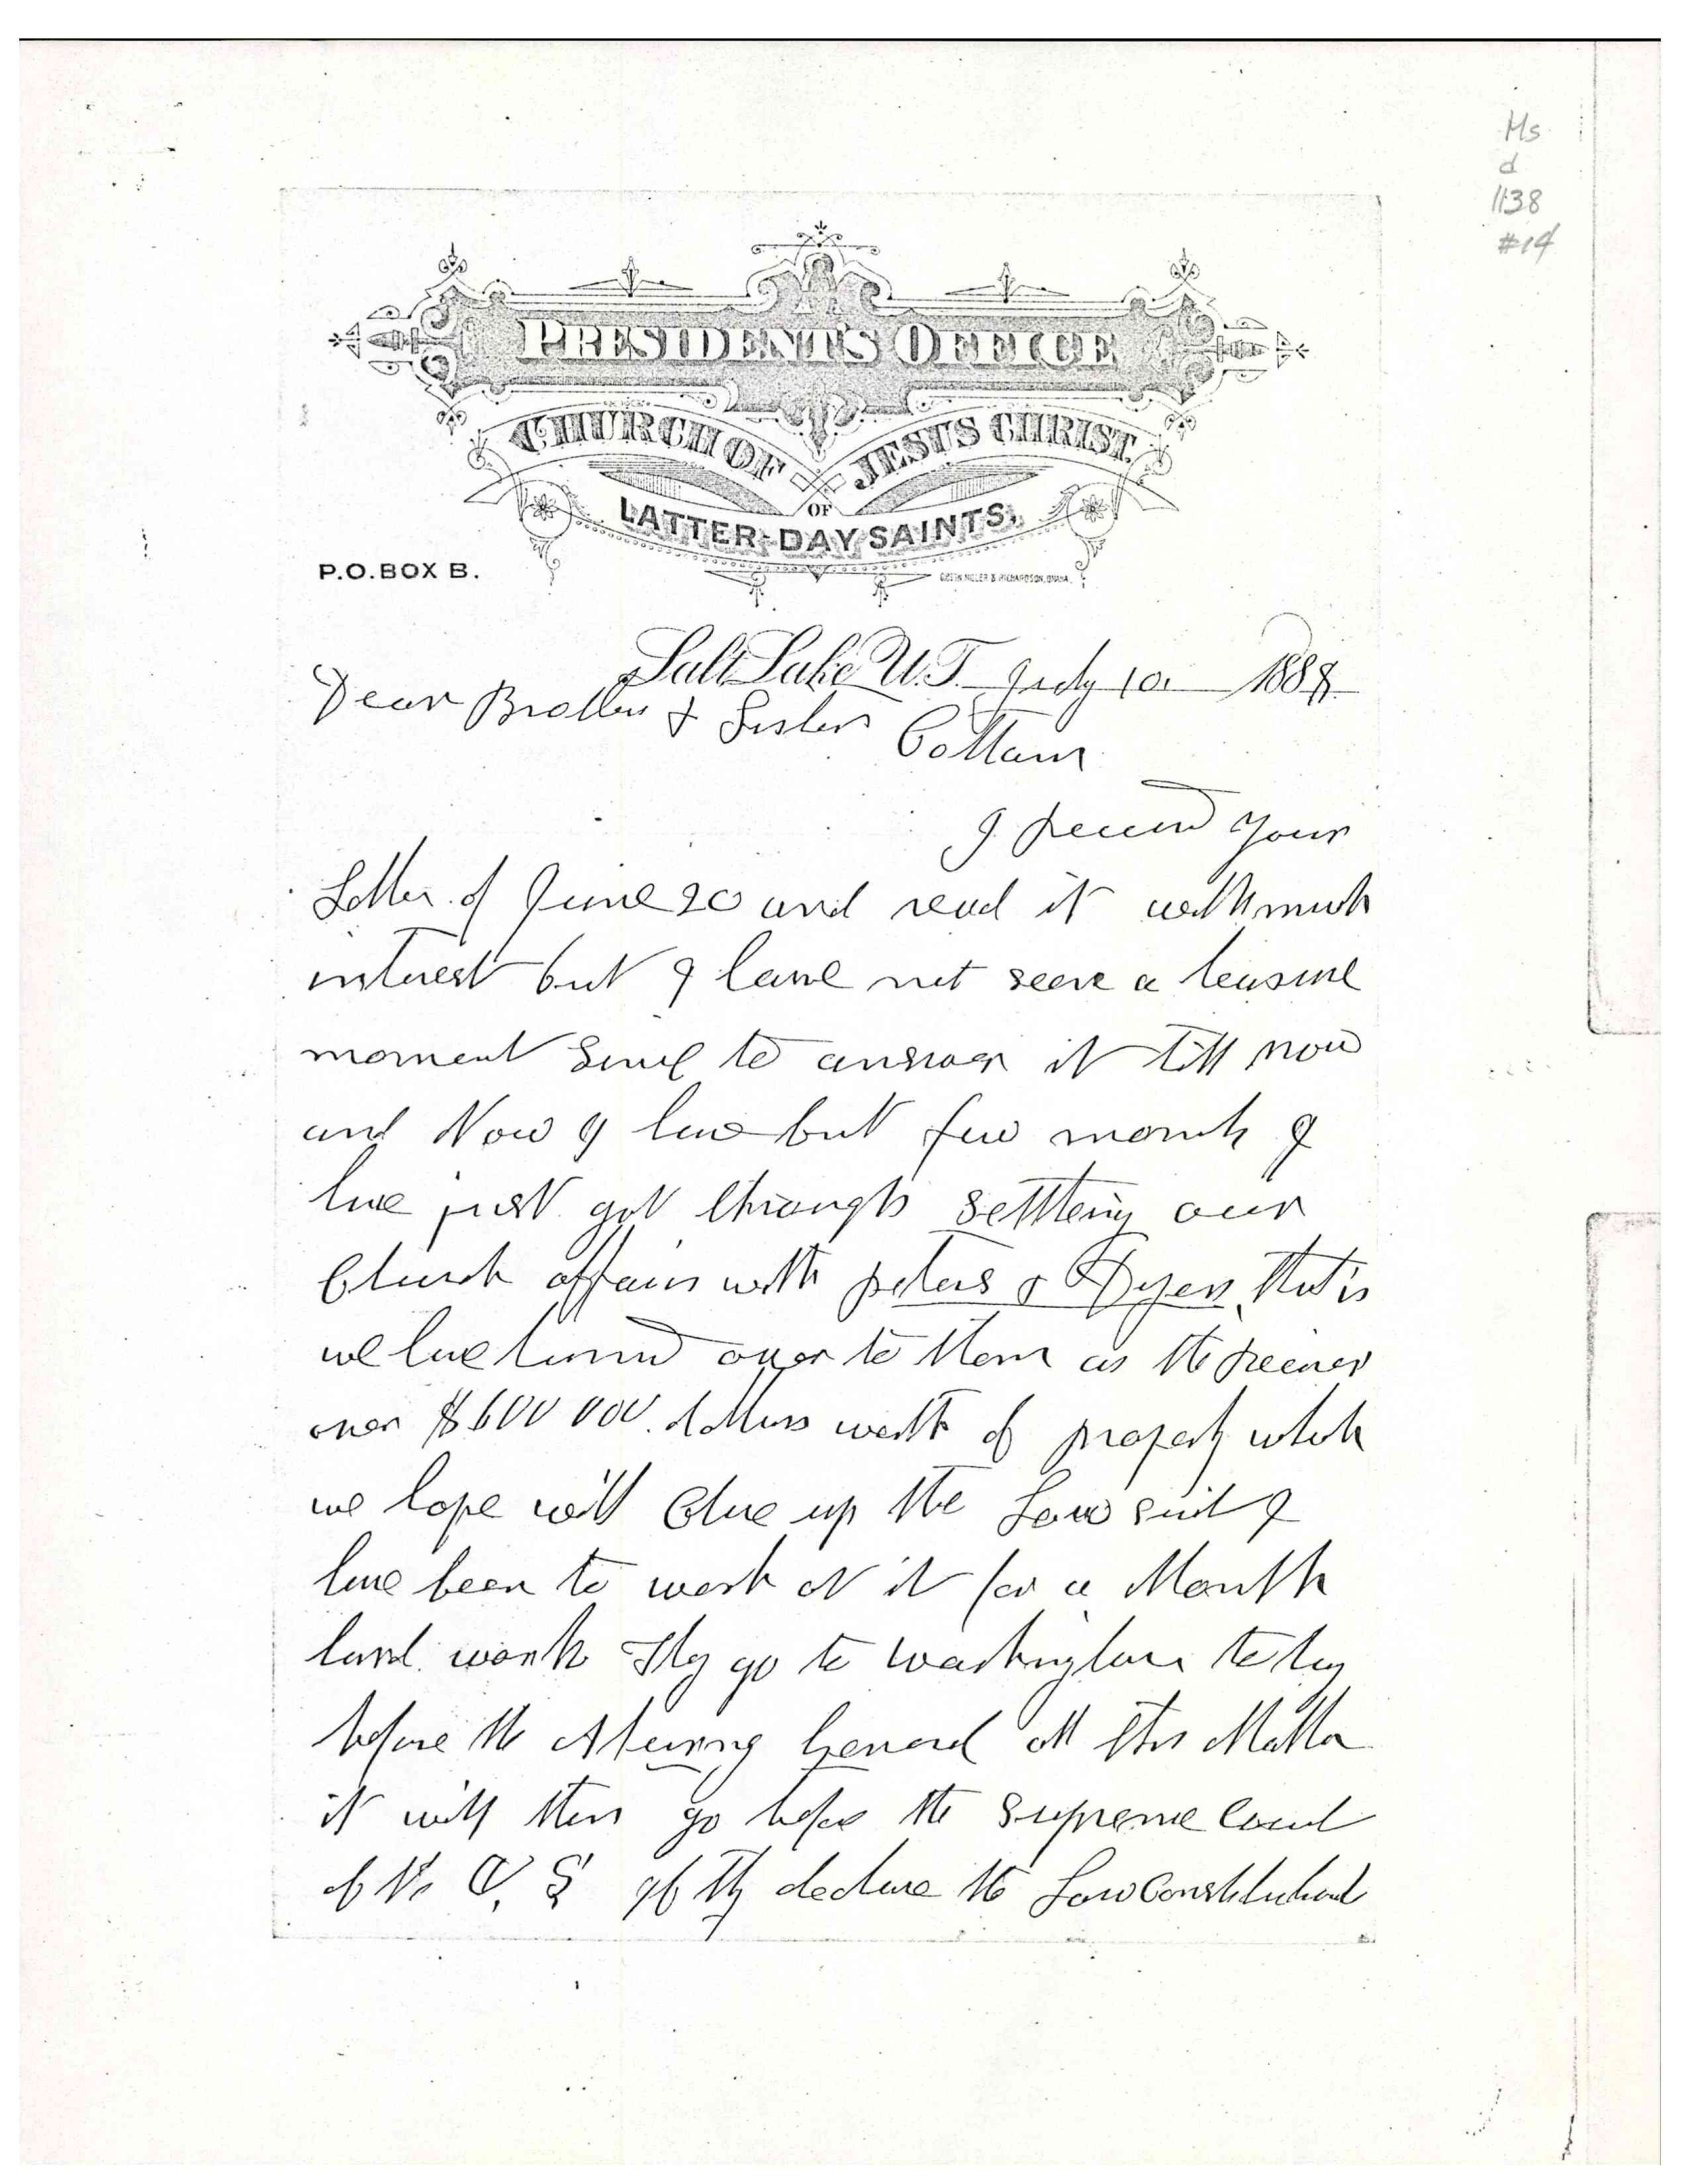 Ms
d
1138
#14
PRESIDENT'S OFFICE
CHURCH OF JESUS CHRIST
OF
LATTER-DAY SAINTS,
P.O. BOX B.
Salt Lake U.T. July 10 1888
Dear Brother & Sister
Cottam
I receivd your
Letter of June 20 and read it with much
interest but I have not seen a leasure
moment since to answer it till now
and Now I have but few moments I
have just got through settleing our
Church affairs with peters & Dyer, that is
we have turned over to them as the receiver
over $600 000. dollars worth of property which
we hope will Close up the Law suit I
have been to work at it for a Month
hard work They go to washington to lay
before the Atturny General all this Matter
it will then go before the Supreme Court
of the U, S if they declare the Law Constitutional